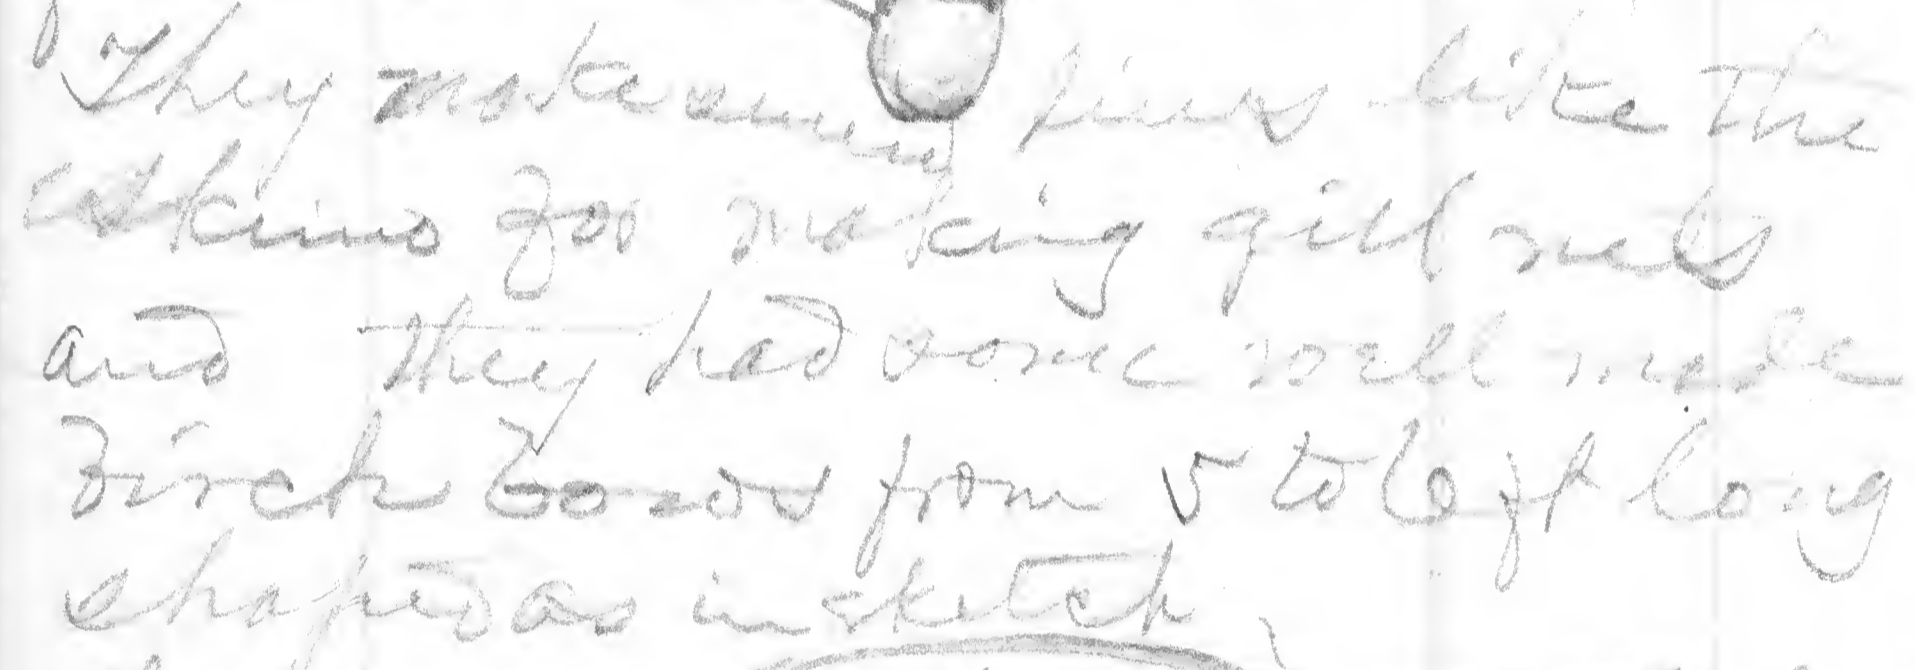 They make sinews fine like the
eskimo for making gill nets
and they had some well made
Birch bows from 5 to 6 ft long
shaped as in sketch